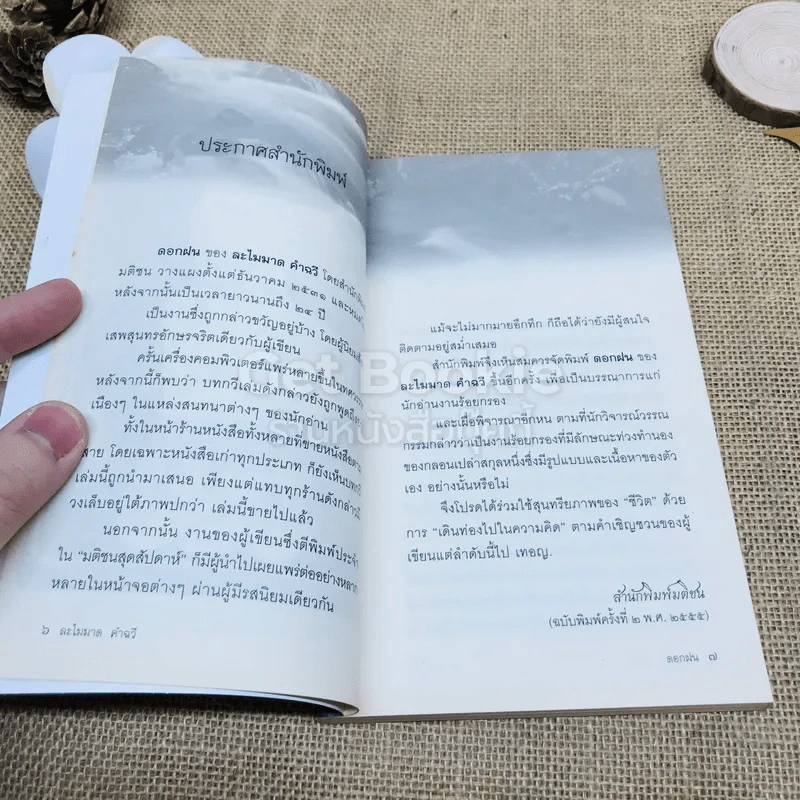 ประกาศสำนักพิมพ์
ดอกฝน ของ ละไมมาด คำฉวี โดยสำนักพิมพ์
มติชน วางแผงตั้งแต่ธันวาคม ๒๕๓๑ และหมด
หลังจากนั้นเป็นเวลายาวนานถึง ๒๔ ปี
เป็นงานซึ่งถูกกล่าวขวัญอยู่บ้าง โดยผู้นิยม
เสพสุนทรอักษรจริตเดียวกับผู้เขียน
ครั้นเครื่องคอมพิวเตอร์แพร่หลายขึ้นในทศวรรษ
หลังจากนี้ก็พบว่า บทกวีเล่มดังกล่าวยังถูกพูดถึง
เนืองๆ ในแหล่งสนทนาต่างๆ ของนักอ่าน
ทั้งในหน้าร้านหนังสือทั้งหลายที่ขายหนังสือ
สาย โดยเฉพาะหนังสือเก่าทุกประเภท ก็ยังเห็นบท
เล่มนี้ถูกนำมาเสนอ เพียงแต่แทบทุกร้านดังกล่าว
วงเล็บอยู่ใต้ภาพปกว่า เล่มนี้ขายไปแล้ว
นอกจากนั้น งานของผู้เขียนซึ่งตีพิมพ์ประจำ
ใน “มติชนสุดสัปดาห์” ก็มีผู้นำไปเผยแพร่ต่ออย่างหลาก
หลายในหน้าจอต่างๆ ผ่านผู้มีรสนิยมเดียวกัน
๖ ละไมมาด คำฉวี
แม้จะไม่มากมายอึกทึก ก็ถือได้ว่ายังมีผู้สนใจ
ติดตามอยู่สม่ำเสมอ
สำนักพิมพ์จึงเห็นสมควรจัดพิมพ์ ดอกฝน ของ
ละไมมาด คำฉวี ขึ้นอีกครั้ง เพื่อเป็นบรรณาการแก่
นักอ่านงานร้อยกรอง
และเผื่อพิจารณาอีกหน ตามที่นักวิจารณ์วรรณ
กรรมกล่าวว่าเป็นงานร้อยกรองที่มีลักษณะท่วงทำนอง
ของกลอนเปล่าสกุลหนึ่งซึ่งมีรูปแบบและเนื้อหาของตัว
เอง อย่างนั้นหรือไม่
จึงโปรดได้ร่วมใช้สุนทรียภาพของ “ชีวิต” ด้วย
การ “เดินท่องไปในความคิด” ตามคำเชิญชวนของผู้
เขียนแต่ลำดับนี้ไป เทอญ.
สำนักพิมพ์มติชน
(ฉบับพิมพ์ครั้งที่ ๒ พ.ศ. ๒๕๕๕)
ดอกฝน ๗